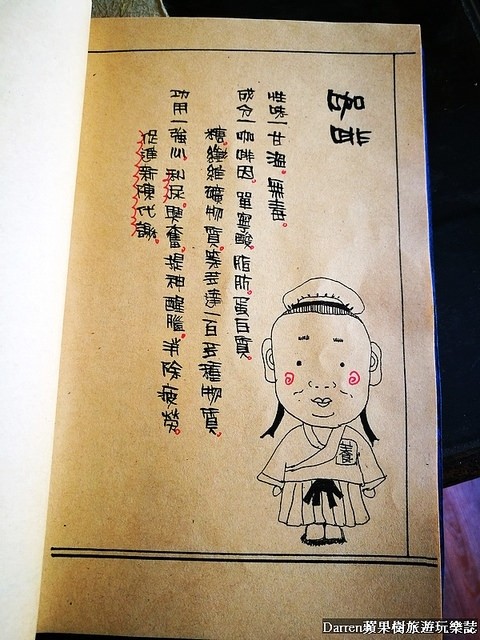 性味一甘溫。無毒。
成分一咖啡因。單寧酸。脂肪。蛋白質。
糖。纖維。礦物質。多達一百多種物質。
功用一強心。利尿。興奮。提神醒腦。消除疲勞。
促進新陳代謝。
養
Darren蘋果樹旅遊玩樂誌